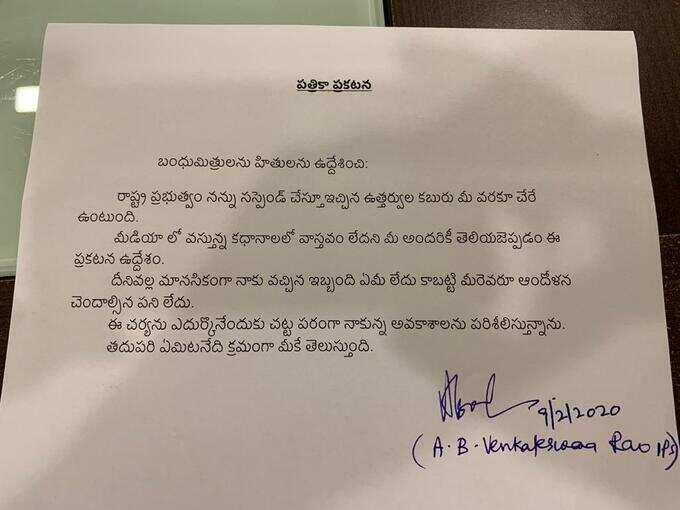 పత్రికా ప్రకటన
బంధుమిత్రులను హితులను ఉద్దేశించి:
రాష్ట్ర ప్రభుత్వం నన్ను సస్పెండ్ చేస్తూ ఇచ్చిన ఉత్తర్వుల కబురు మీ వరకూ చేరే
ఉంటుంది.
మీడియా లో వస్తున్న కధానాలలో వాస్తవం లేదని మీ అందరికీ తెలియజెప్పడం ఈ
ప్రకటన ఉద్దేశం.
దీనివల్ల మానసికంగా నాకు వచ్చిన ఇబ్బంది ఏమీ లేదు కాబట్టి మీరెవరూ ఆందోళన
చెందాల్సిన పని లేదు.
ఈ చర్యను ఎదుర్కొనేందుకు చట్ట పరంగా నాకున్న అవకాశాలను పరిశీలిస్తున్నాను.
తదుపరి ఏమిటనేది క్రమంగా మీకే తెలుస్తుంది.
9/2/2020
(A. B. Venkateswara Rao IPS)